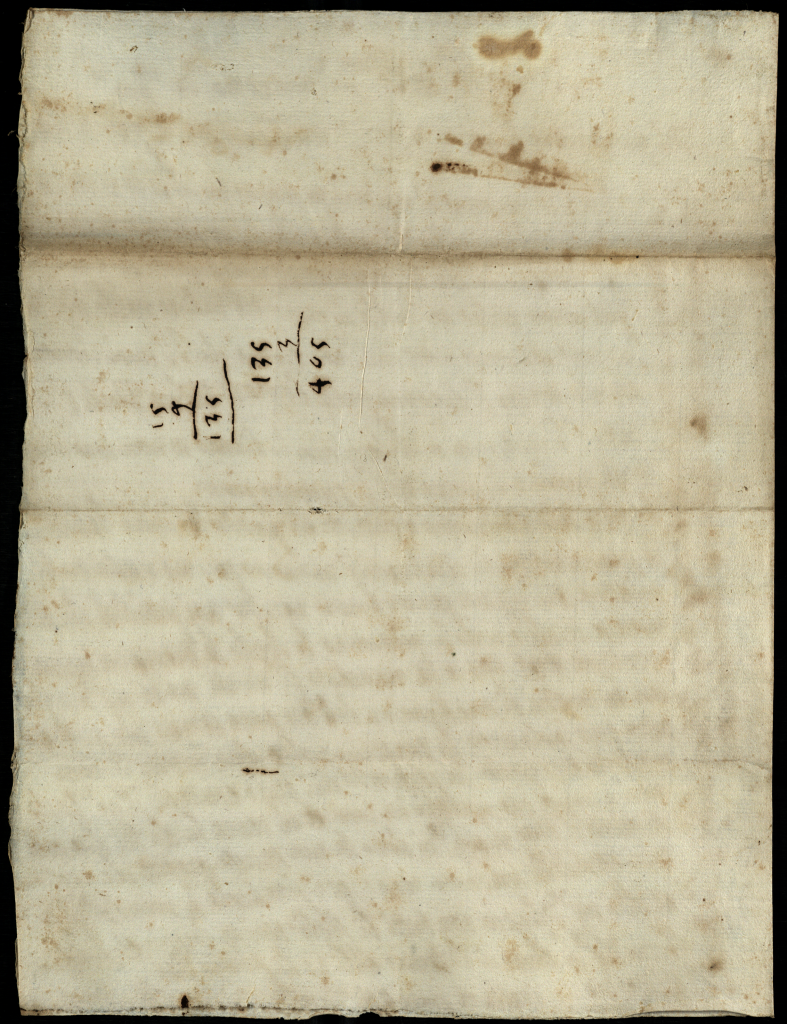 15
9
135
135
3
405